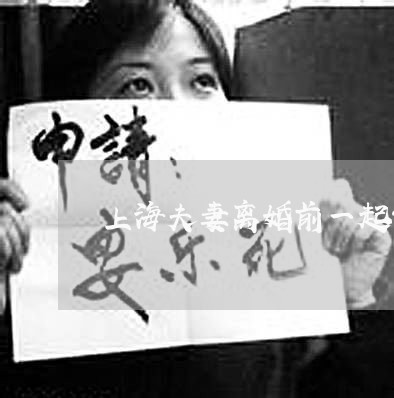 申請：
上海夫妻离婚前一起
安乐死